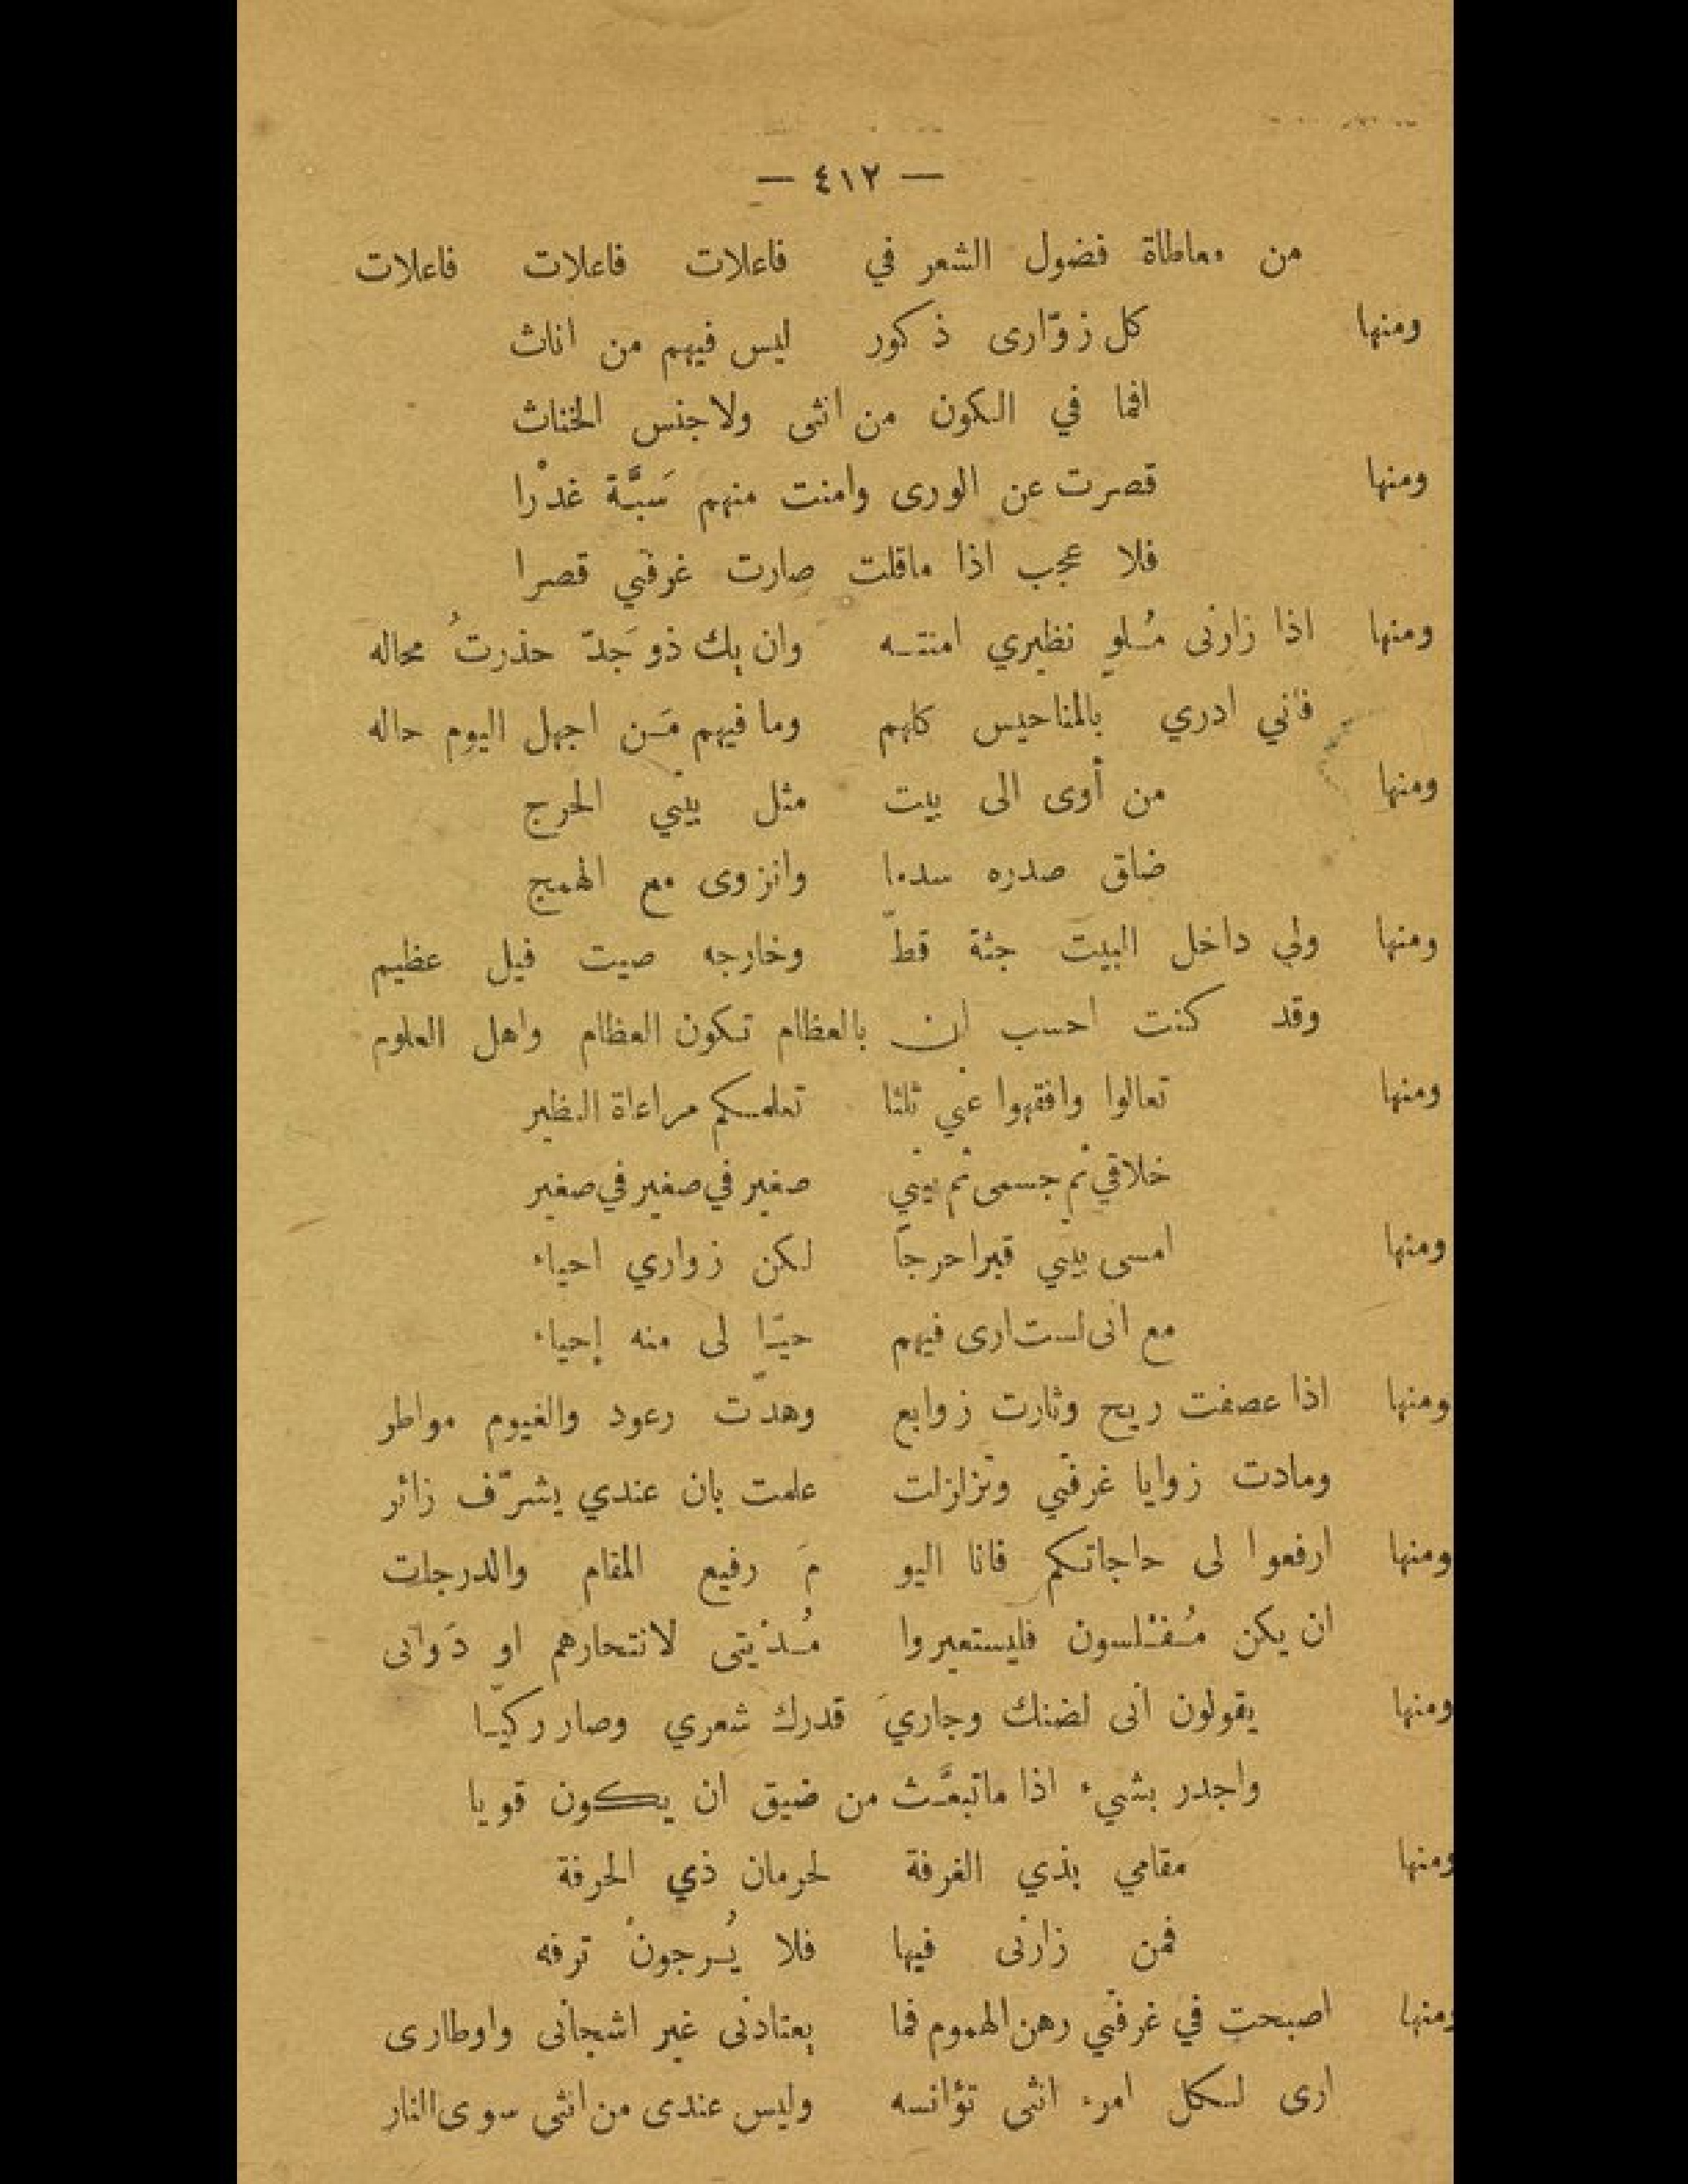 — ٤١٢ —
من معاطاة فضول الشعر في فاعلات فاعلات فاعلات
ومنها كل زوّارى ذكور ليس فيهم من اناث
افما في الكون من انثى ولا جنس الخناث
ومنها قصرت عن الورى وامنت منهم سَبَّة غدْرا
فلا عجب اذا ماقلت صارت غرفتي قصرا
ومنها اذا زارنى مُلو نظيري امنته وان يك ذو جَدّ حذرتُ محاله
فأني ادري بالمناحيس كلهم وما فيهم مَن اجهل اليوم حاله
ومنها من أوى الى بيت مثل بيتي الحرج
ضاق صدره سدما وانزوى مع الهمج
ومنها ولي داخل البيت جثة قطّ وخارجه صيت فيل عظيم
وقد كنت احسب ان بالعظام تكون العظام واهل العلوم
ومنها تعالوا وافقهوا عني ثلثا تعلمكم مراعاة النظير
خلاقي ثم جسمى ثم بيتي صغير في صغير في صغير
ومنها امسى بيتي قبرا حرجاً لكن زواري احياء
مع انى لست ارى فيهم حيًّا لى منه إحياء
ومنها اذا عصفت ريح وثارت زوابع وهدّت رعود والغيوم مواطر
ومادت زوايا غرفتي وتزلزلت علمت بان عندي يشرّف زائر
ومنها ارفعوا لى حاجاتكم فانا اليو مَ رفيع المقام والدرجات
ان يكن مُفْلسون فليستعيروا مُدْيتى لانتحارهم او دَواتى
ومنها يقولون أنى لضنك وجاريَ قدرك شعري وصار ركيّا
واجدر بشيء اذا ماتبعَّث من ضيق ان يكون قويا
ومنها مقامي بذي الغرفة لحرمان ذي الحرفة
فمن زارنى فيها فلا يُرجونْ ترفه
ومنها اصبحت في غرفتي رهن الهموم فما يعتادنى غير اشجانى واوطارى
ارى لكل امرء انثى تؤانسه وليس عندى من انثى سوى النار